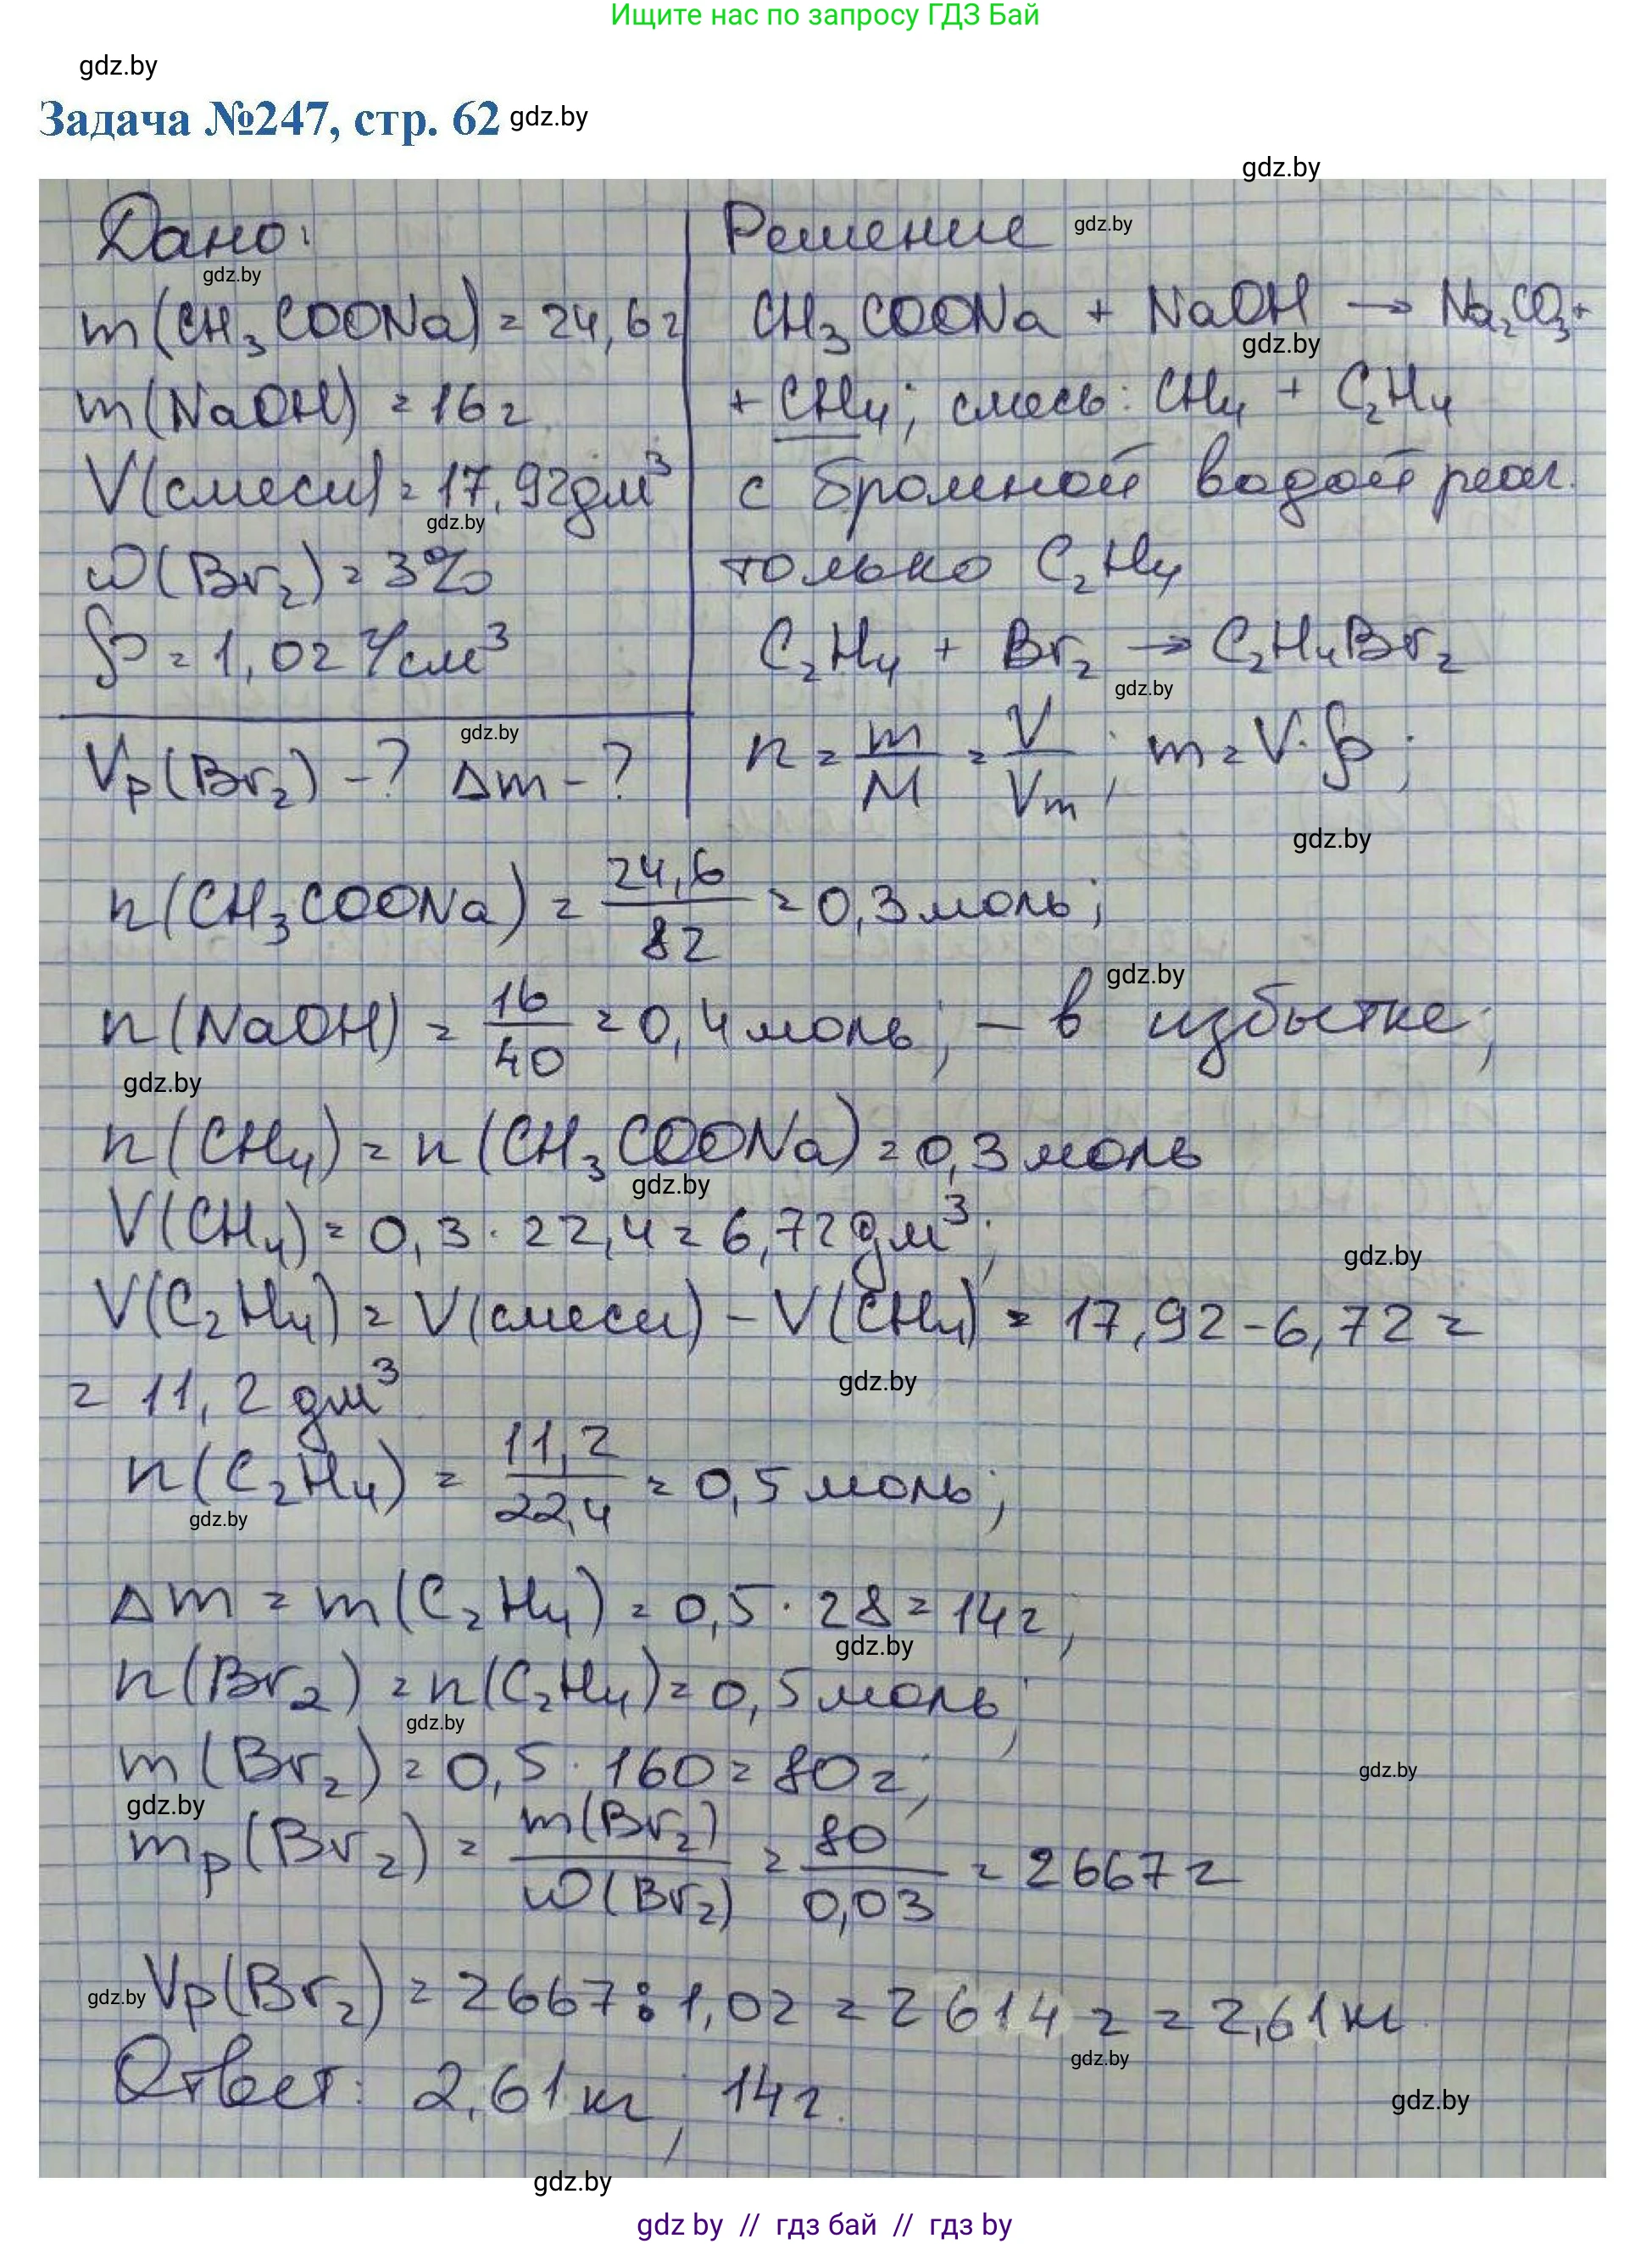 Ищите нас по запросу ГДЗ Бай
gdz.by
Задача №247, стр. 62 gdz.by
gdz.by
Дано:
gdz.by
m(CH₃COONa) = 24,6г
m(NaOH) = 16г
V(смеси) = 17,92дм³
gdz.by
ω(Br₂) = 3%
ρ = 1,02 г/см³
gdz.by
Vр(Br₂) - ? Δm - ?
Решение gdz.by
CH₃COONa + NaOH → Na₂CO₃ +
gdz.by
+ CH₄; смесь: CH₄ + C₂H₄
с бромной водой реаг.
только C₂H₄
C₂H₄ + Br₂ → C₂H₄Br₂
gdz.by
n = m/M = V/Vm; m = V·ρ;
gdz.by
n(CH₃COONa) = 24,6/82 = 0,3моль;
gdz.by
n(NaOH) = 16/40 = 0,4моль; - в избытке;
gdz.by
n(CH₄) = n(CH₃COONa) = 0,3моль
gdz.by
V(CH₄) = 0,3 · 22,4 = 6,72дм³;
gdz.by
V(C₂H₄) = V(смеси) - V(CH₄) = 17,92 - 6,72 =
= 11,2 дм³
gdz.by
n(C₂H₄) = 11,2/22,4 = 0,5моль;
gdz.by
Δm = m(C₂H₄) = 0,5 · 28 = 14г;
gdz.by
n(Br₂) = n(C₂H₄) = 0,5моль;
gdz.by
m(Br₂) = 0,5 · 160 = 80г;
gdz.by
gdz.by
mр(Br₂) = m(Br₂)/ω(Br₂) = 80/0,03 = 2667г
gdz.by Vр(Br₂) = 2667 : 1,02 = 2614 г = 2,61кг
gdz.by
Ответ: 2,61кг, 14г.
gdz.by
gdz.by
gdz by // гдз бай // гдз by